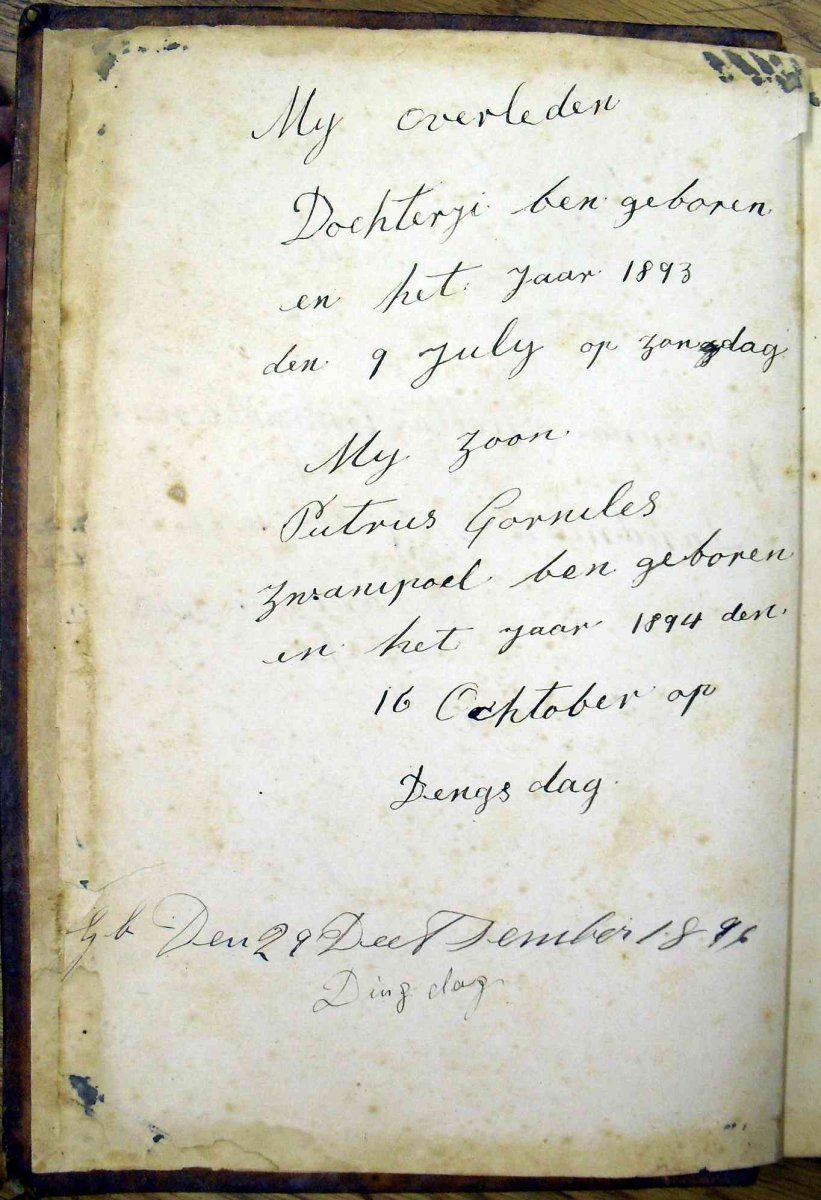 My overleden
Dochterji ben geboren
en het Jaar 1893
den 9 July op zongdag
My zoon
Putrus Gorniles
Zwanipoel ben geboren
in het jaar 1894 den
16 Ochtober op
Dengsdag
Den 29 DeeTsember 1896
Dingdag